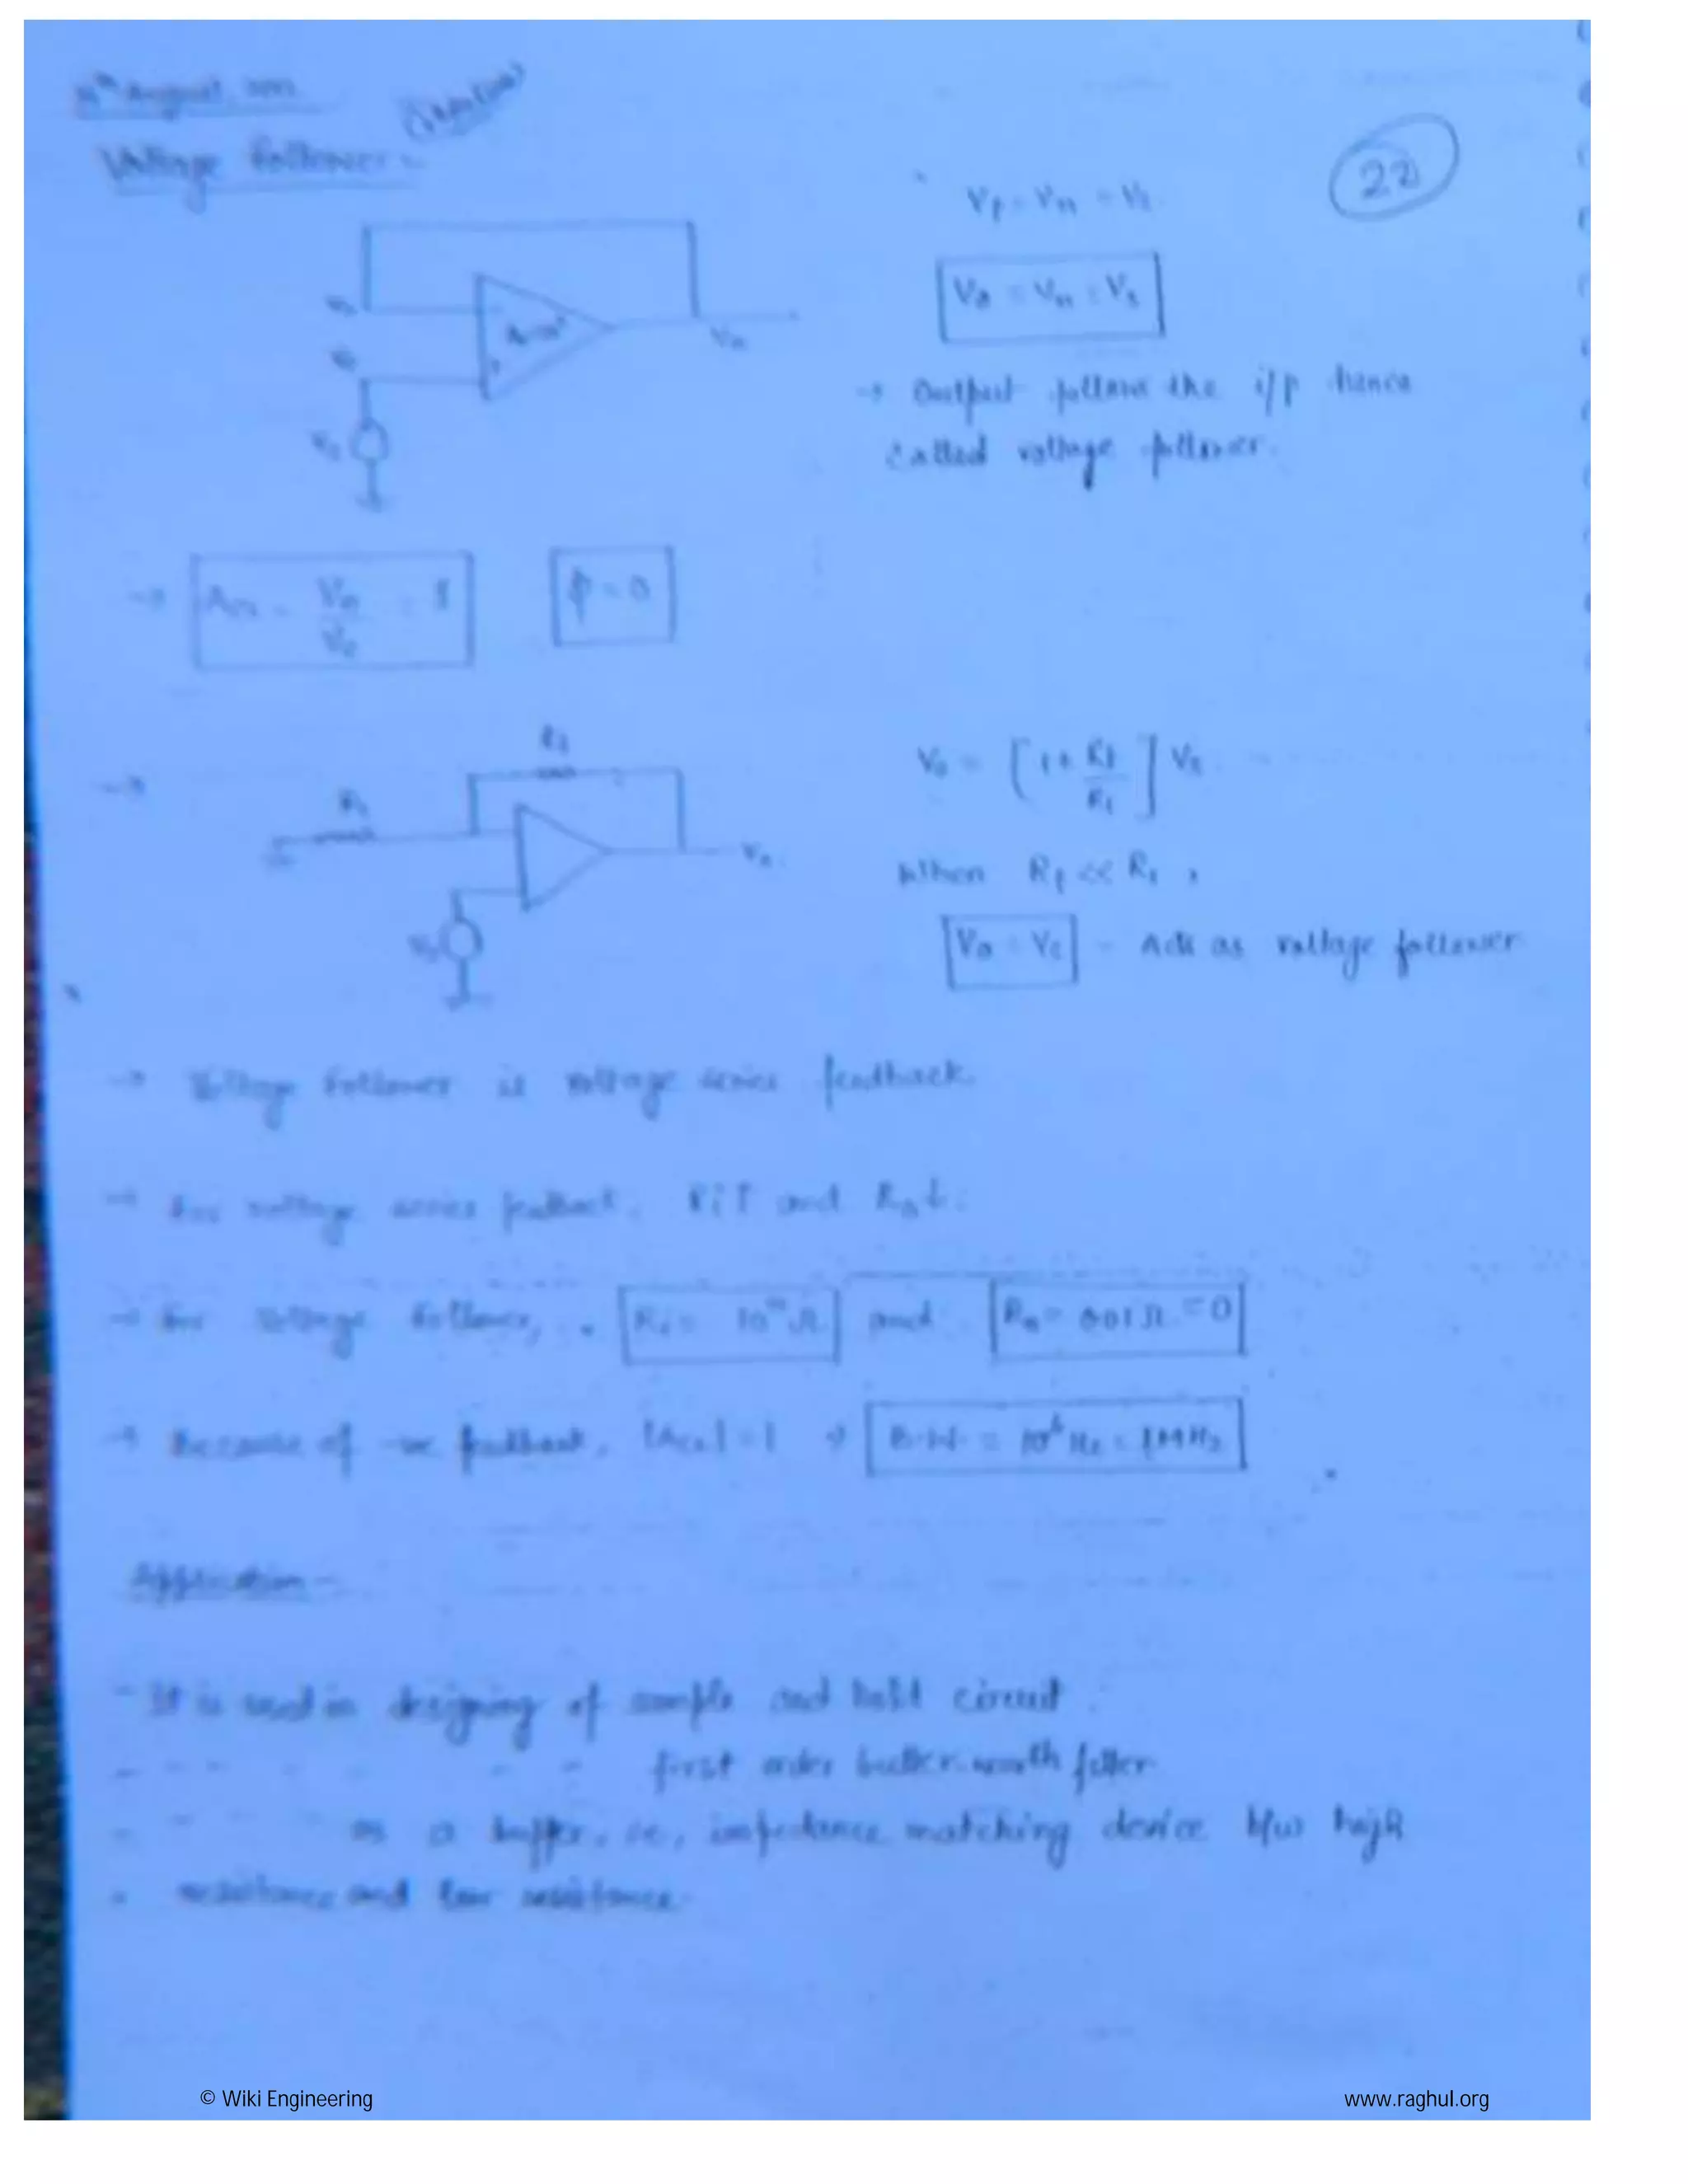 August
Voltage Follower -
22
Vp = Vn = Vs
V0 = Vn = Vs
→ Output follows the i/p hence
called voltage follower.
Vn
Vs
V0
→ ACL = V0 / Vs = 1
ϕ = 0
→
Rf
R1
V0
Vs
V0 = [ 1 + Rf / R1 ] Vs
When Rf << R1 ,
V0 = Vs - Acts as voltage follower
→ Voltage follower is voltage series feedback.
→ For voltage series feedback, Ri↑ and R0↓.
→ For voltage follower, Ri = Ω and R0 = Ω = 0
→ Because of -ve feedback, |ACL| = 1 → B.W. = 10^6 Hz = 1MHz
Application -
- It is used in designing of sample and hold circuit.
- - - - - - - first order butter-worth filter
- - - as a buffer, ie, impedance matching device b/w high
resistance and low resistance.
© Wiki Engineering
www.raghul.org